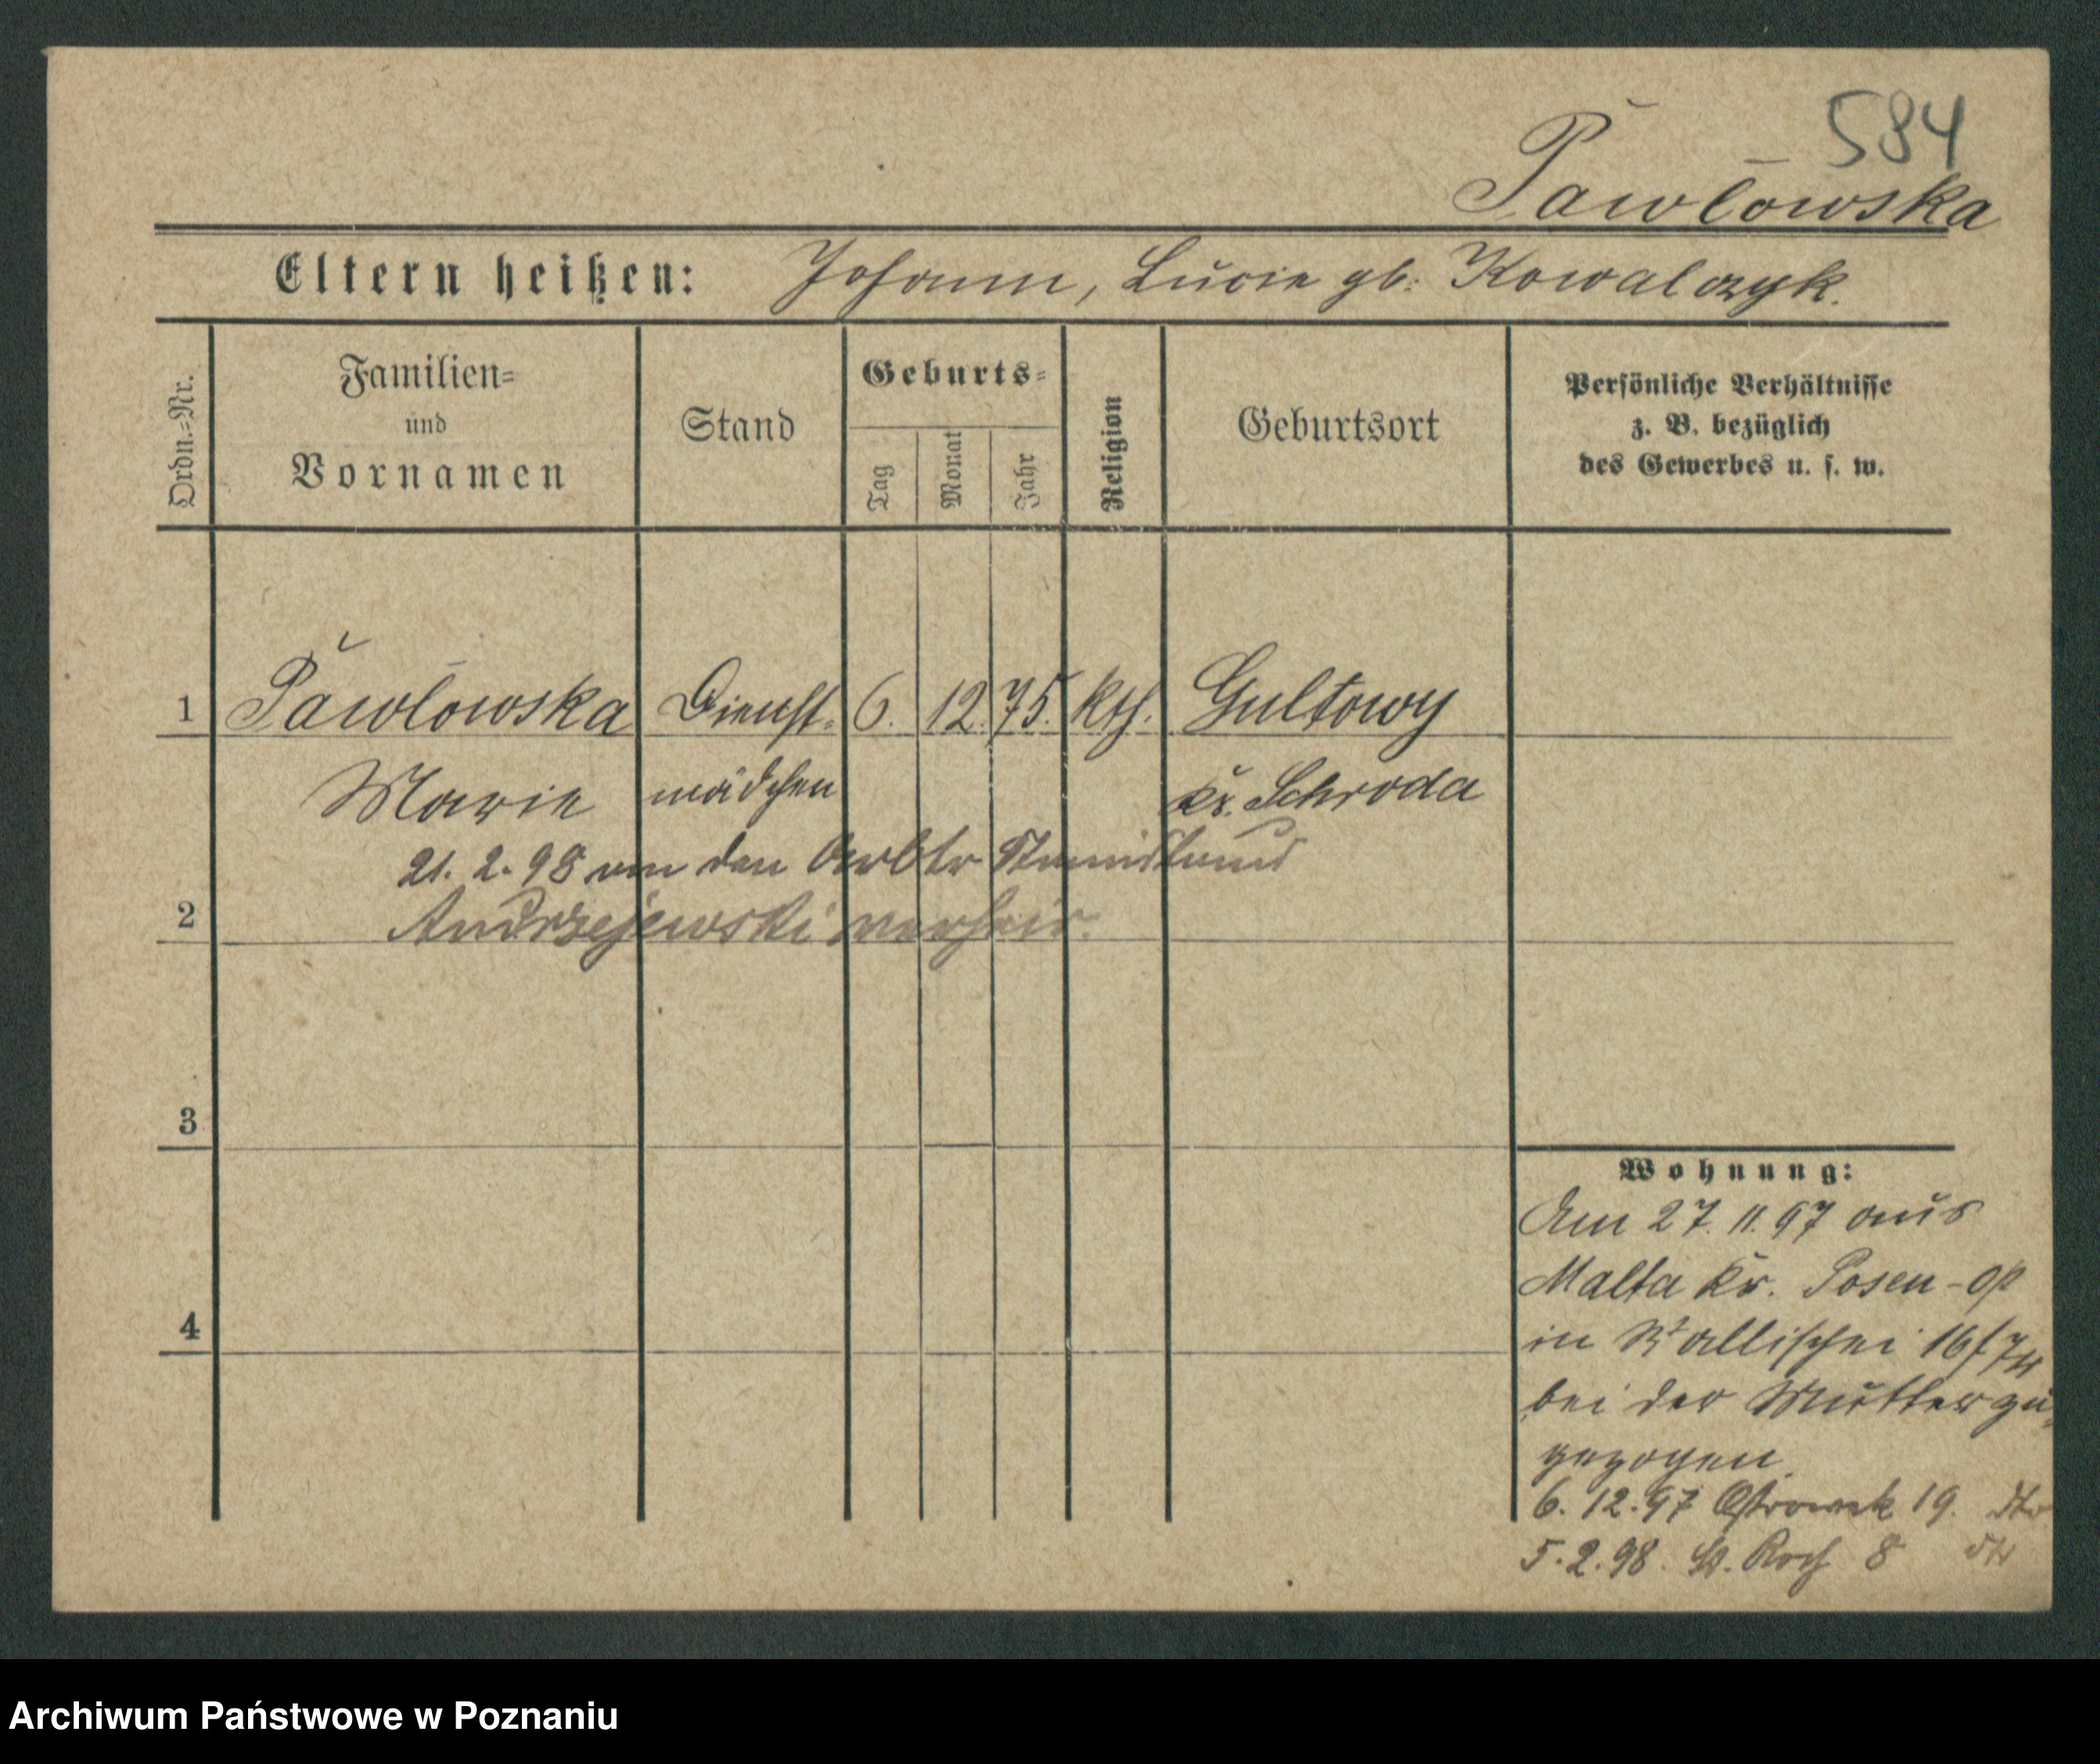 584
Pawłowska
Eltern heißen: Johann, Lucie gb: Kowalczyk.
Ordn.=Nr.
Familien=
und
Vornamen
Stand
Geburts=
Tag
Monat
Jahr
Religion
Geburtsort
Persönliche Verhältnisse
z. B. bezüglich
des Gewerbes u. s. w.
1 Pawłowska Dienst- 6. 12. 75. kth. Gultowy
Marie mädchen Kr. Schroda
21. 2. 98 den Arbtr
2 Andrzejewski verheir.
3
4
Wohnung:
Am 27. 11. 97 aus
Malta Kr. Posen-
in Wallischei
bei der Mutter zu-
gezogen.
6. 12. 97 Ostrowek 19. dto
5. 2. 98. St. Roch 8 dto
Archiwum Państwowe w Poznaniu